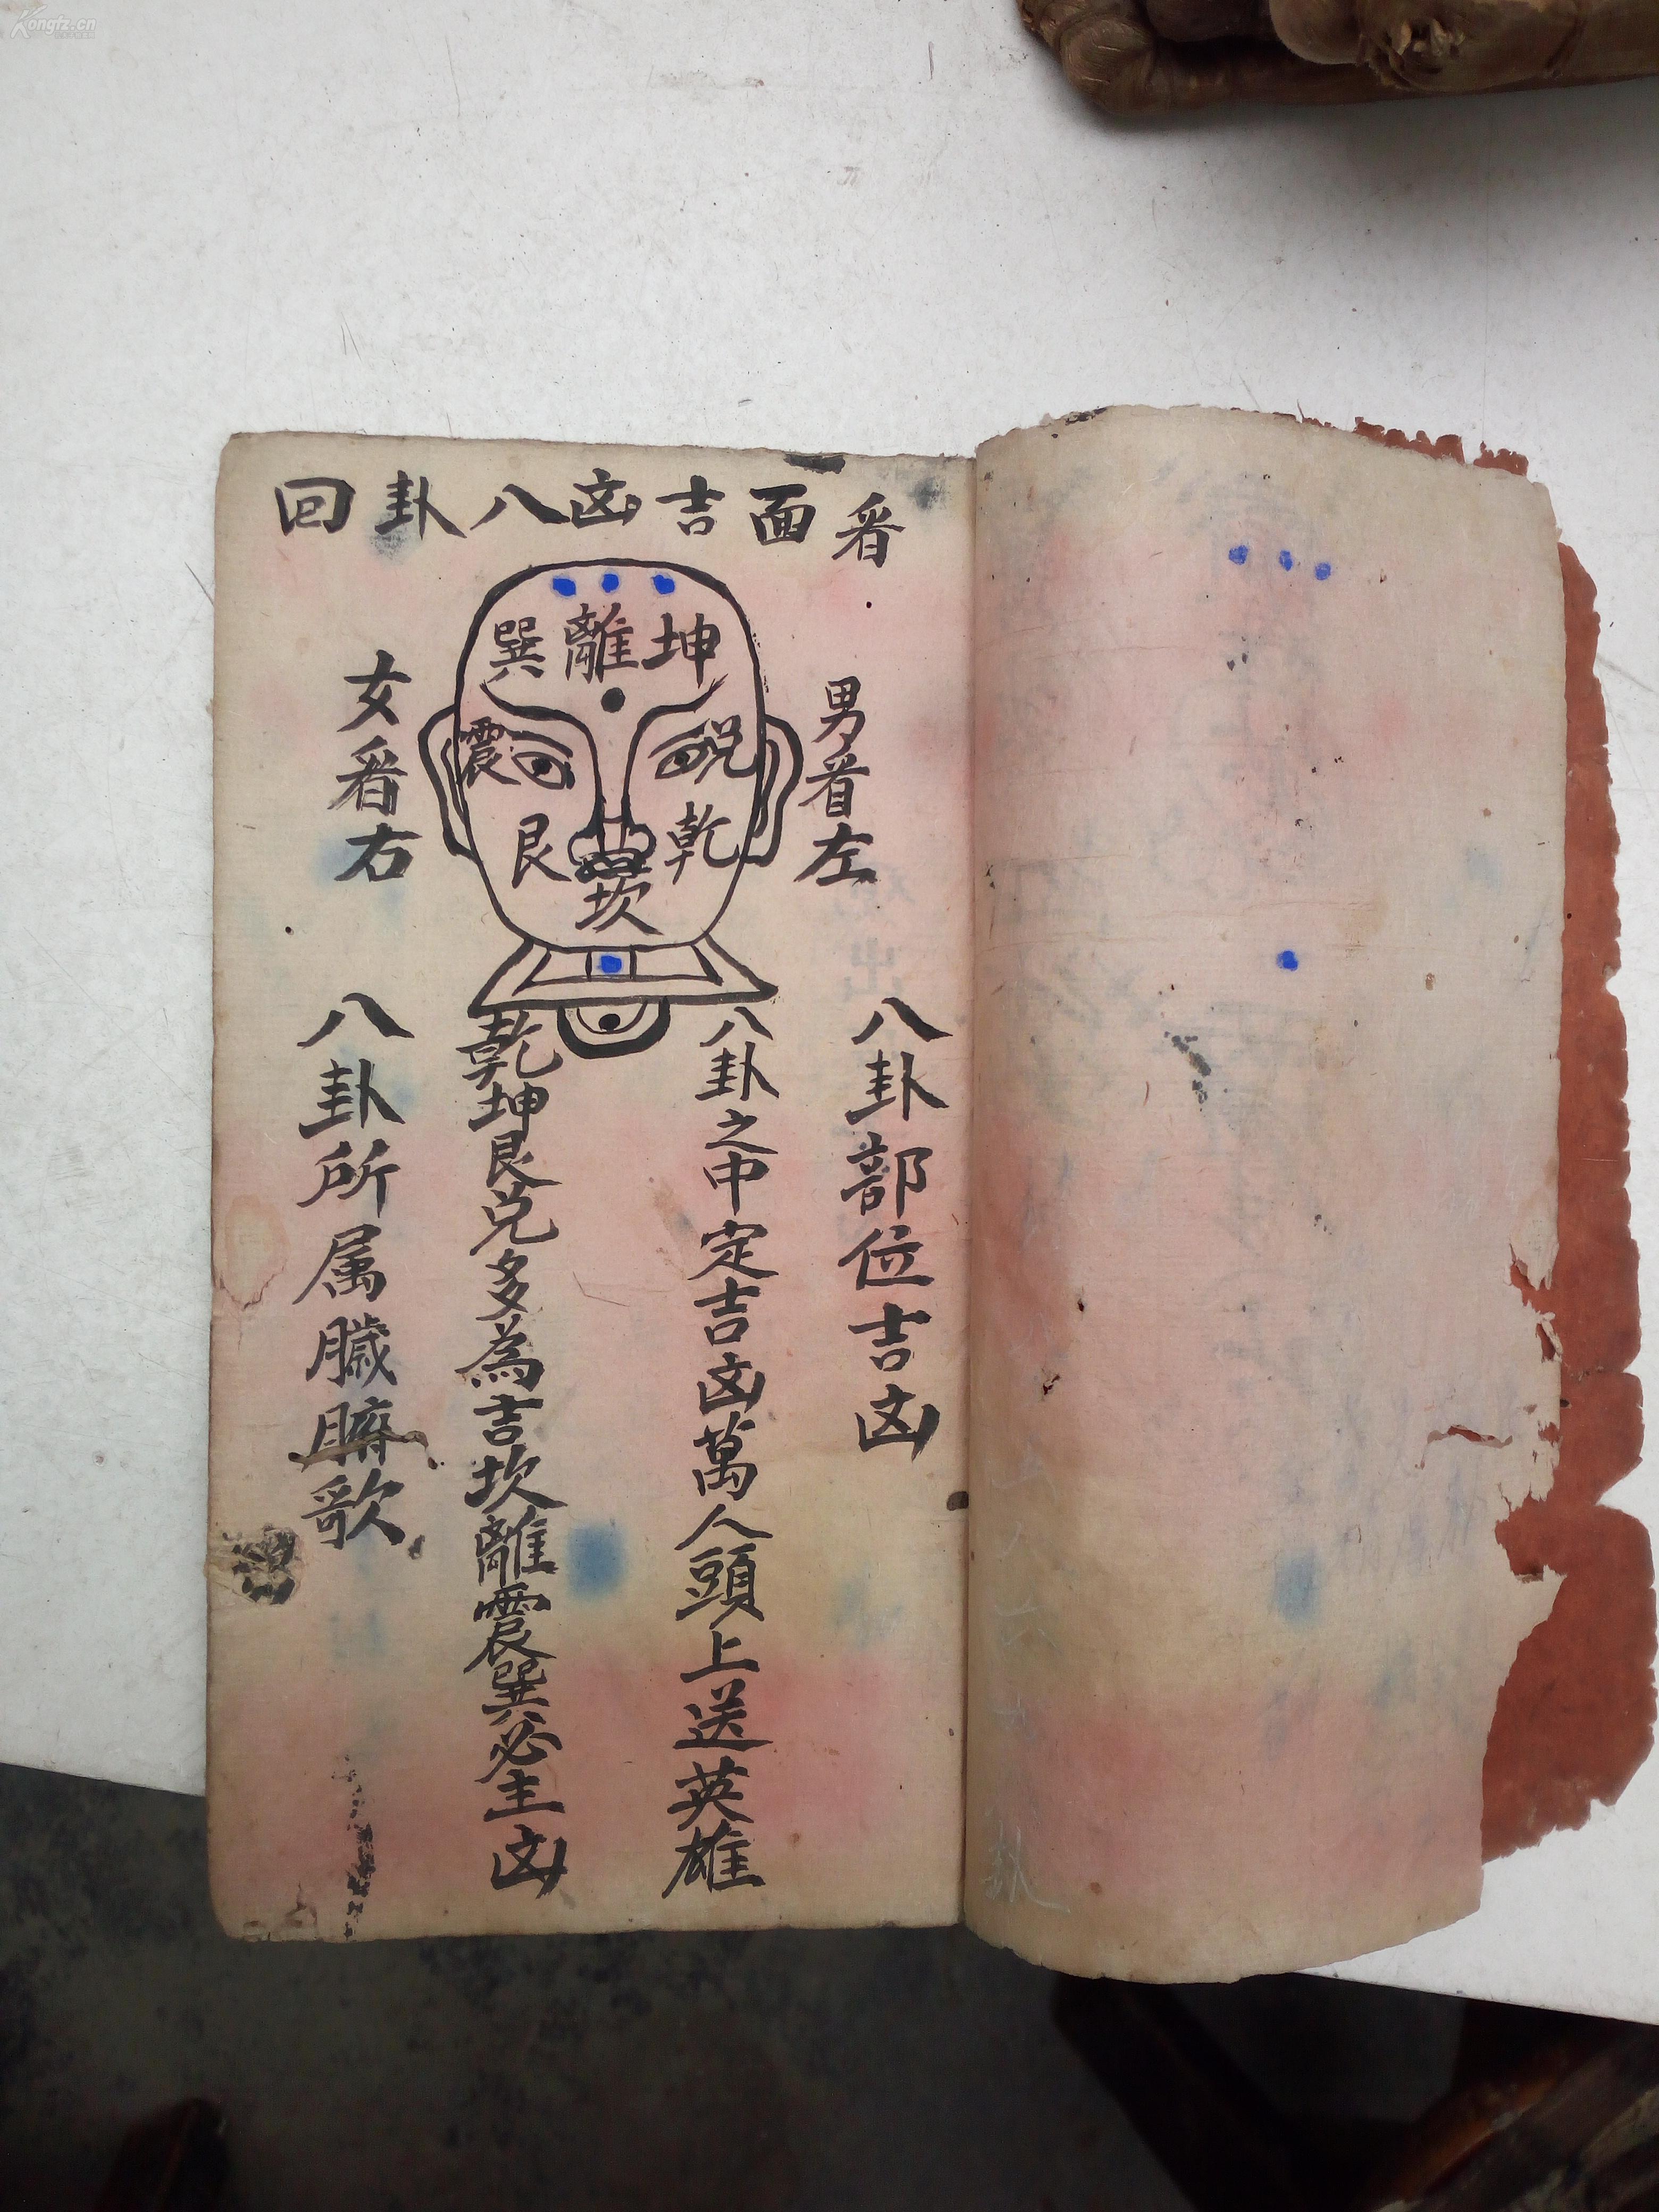 看面吉凶八卦回
坤離巽
兌震
乾艮
坎
男看左
女看右
八卦部位吉凶
八卦之中定吉凶萬人頭上送英雄
乾坤艮兌多為吉坎離震巽必主凶
八卦所属臟腑歌
Kongfz.cn